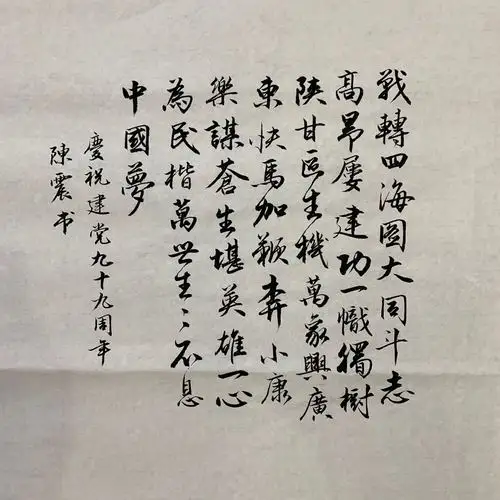 戰轉四海圖大同斗志
高昂屢建功一幟獨樹
陝甘區生機萬象興廣
東快馬加鞭奔小康
樂謀蒼生堪英雄一心
為民楷萬世生〻不息
中國夢
慶祝建党九十九周年
陳震书